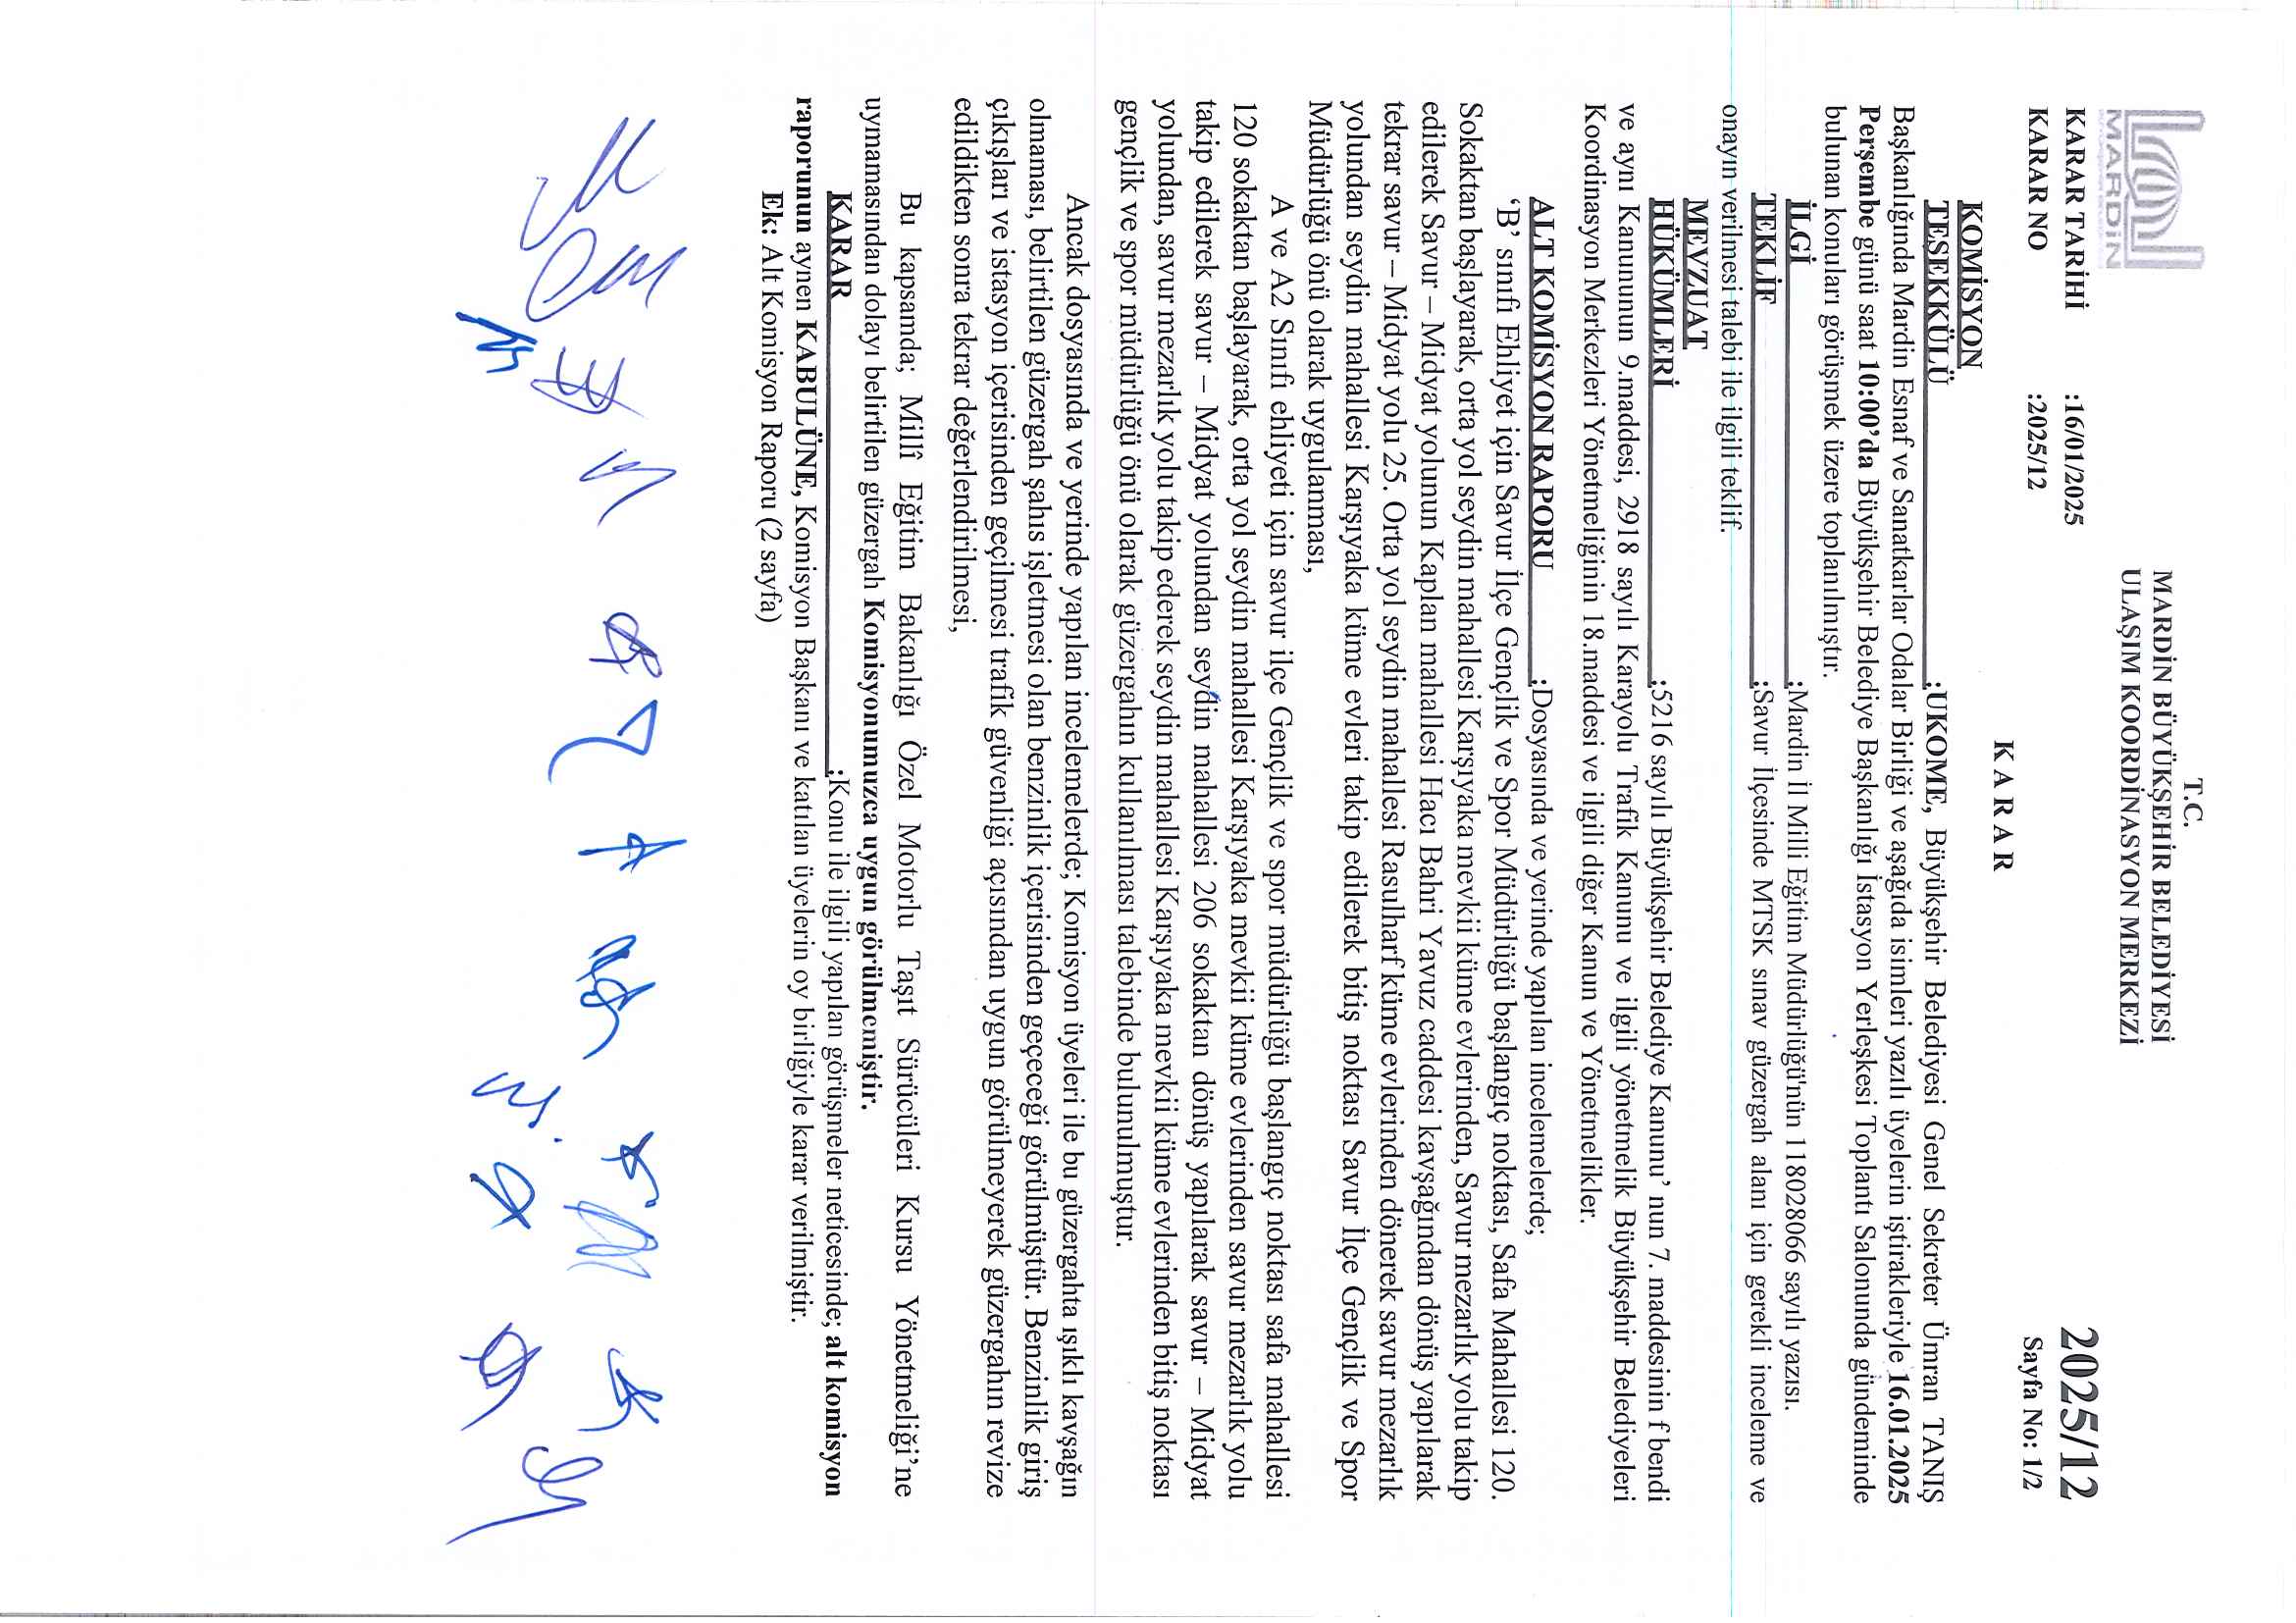 T.C.
MARDİN BÜYÜKŞEHİR BELEDİYESİ
ULAŞIM KOORDİNASYON MERKEZİ
MARDİN
2025/12
KARAR TARİHİ :16/01/2025
KARAR NO :2025/12
Sayfa No: 1/2
K A R A R
KOMİSYON
TEŞEKKÜLÜ :UKOME, Büyükşehir Belediyesi Genel Sekreter Ümran TANIŞ
Başkanlığında Mardin Esnaf ve Sanatkarlar Odalar Birliği ve aşağıda isimleri yazılı üyelerin iştirakleriyle 16.01.2025
Perşembe günü saat 10:00'da Büyükşehir Belediye Başkanlığı İstasyon Yerleşkesi Toplantı Salonunda gündeminde
bulunan konuları görüşmek üzere toplanılmıştır.
İLGİ :Mardin İl Milli Eğitim Müdürlüğü'nün 118028066 sayılı yazısı.
TEKLİF :Savur İlçesinde MTSK sınav güzergah alanı için gerekli inceleme ve
onayın verilmesi talebi ile ilgili teklif.
MEVZUAT
HÜKÜMLERİ :5216 sayılı Büyükşehir Belediye Kanunu' nun 7. maddesinin f bendi
ve aynı Kanununun 9.maddesi, 2918 sayılı Karayolu Trafik Kanunu ve ilgili yönetmelik Büyükşehir Belediyeleri
Koordinasyon Merkezleri Yönetmeliğinin 18.maddesi ve ilgili diğer Kanun ve Yönetmelikler.
ALT KOMİSYON RAPORU :Dosyasında ve yerinde yapılan incelemelerde;
'B' sınıfı Ehliyet için Savur İlçe Gençlik ve Spor Müdürlüğü başlangıç noktası, Safa Mahallesi 120.
Sokaktan başlayarak, orta yol seydin mahallesi Karşıyaka mevkii küme evlerinden, Savur mezarlık yolu takip
edilerek Savur – Midyat yolunun Kaplan mahallesi Hacı Bahri Yavuz caddesi kavşağından dönüş yapılarak
tekrar savur – Midyat yolu 25. Orta yol seydin mahallesi Rasulharf küme evlerinden dönerek savur mezarlık
yolundan seydin mahallesi Karşıyaka küme evleri takip edilerek bitiş noktası Savur İlçe Gençlik ve Spor
Müdürlüğü önü olarak uygulanması,
A ve A2 Sınıfı ehliyeti için savur ilçe Gençlik ve spor müdürlüğü başlangıç noktası safa mahallesi
120 sokaktan başlayarak, orta yol seydin mahallesi Karşıyaka mevkii küme evlerinden savur mezarlık yolu
takip edilerek savur – Midyat yolundan seydin mahallesi 206 sokaktan dönüş yapılarak savur – Midyat
yolundan, savur mezarlık yolu takip ederek seydin mahallesi Karşıyaka mevkii küme evlerinden bitiş noktası
gençlik ve spor müdürlüğü önü olarak güzergahın kullanılması talebinde bulunulmuştur.
Ancak dosyasında ve yerinde yapılan incelemelerde; Komisyon üyeleri ile bu güzergahta ışıklı kavşağın
olmaması, belirtilen güzergah şahıs işletmesi olan benzinlik içerisinden geçeceği görülmüştür. Benzinlik giriş
çıkışları ve istasyon içerisinden geçilmesi trafik güvenliği açısından uygun görülmeyerek güzergahın revize
edildikten sonra tekrar değerlendirilmesi,
Bu kapsamda; Millî Eğitim Bakanlığı Özel Motorlu Taşıt Sürücüleri Kursu Yönetmeliği'ne
uymamasından dolayı belirtilen güzergah Komisyonumuzca uygun görülmemiştir.
KARAR :Konu ile ilgili yapılan görüşmeler neticesinde; alt komisyon
raporunun aynen KABULÜNE, Komisyon Başkanı ve katılan üyelerin oy birliğiyle karar verilmiştir.
Ek: Alt Komisyon Raporu (2 sayfa)